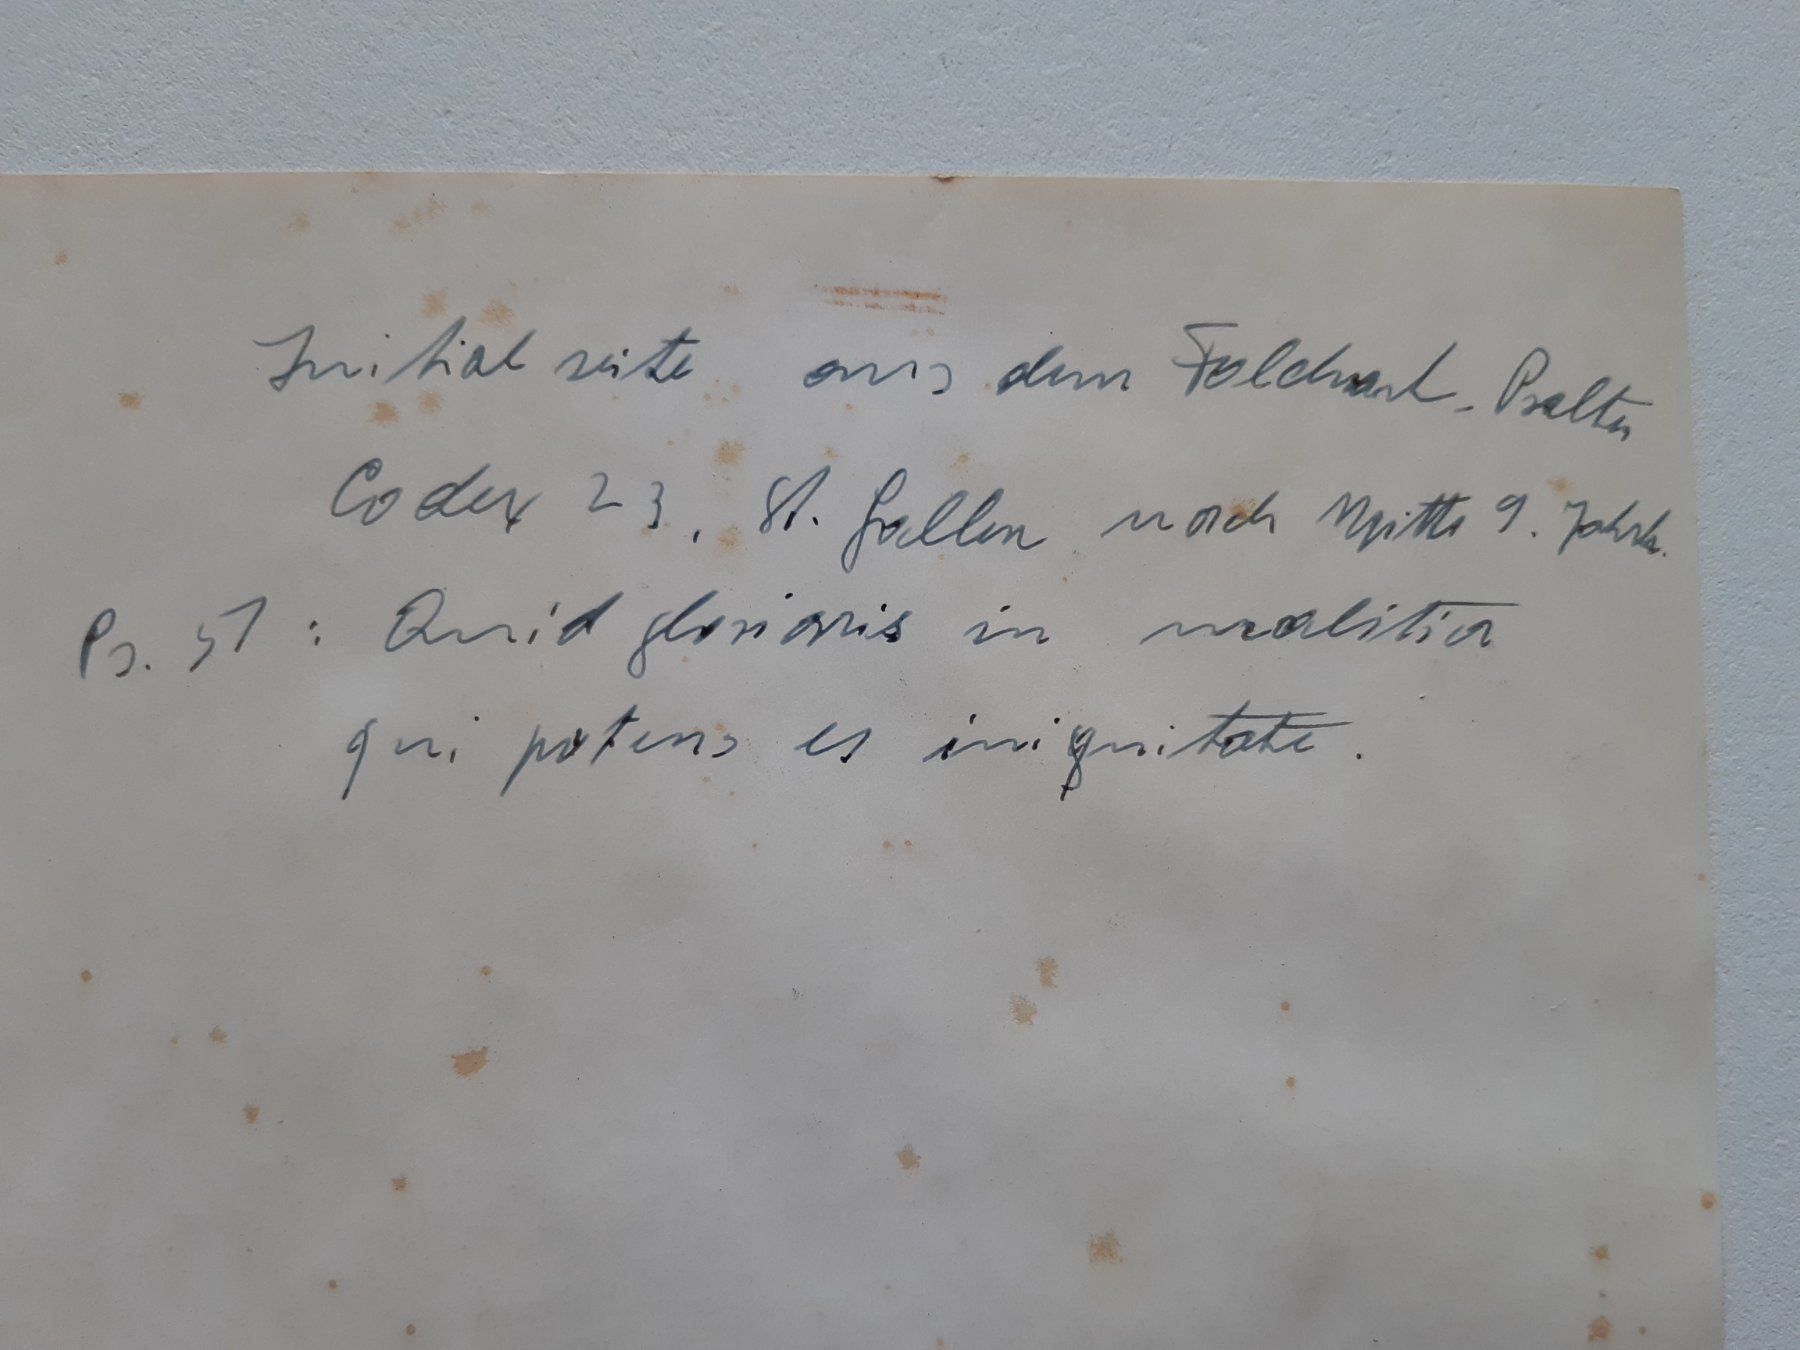 Initialseite aus dem Folchart-Psalter
Codex 23, St. Gallen nach Mitte 9. Jahrh.
Ps. 51: Quid gloriaris in malitia
qui potens es iniquitate.